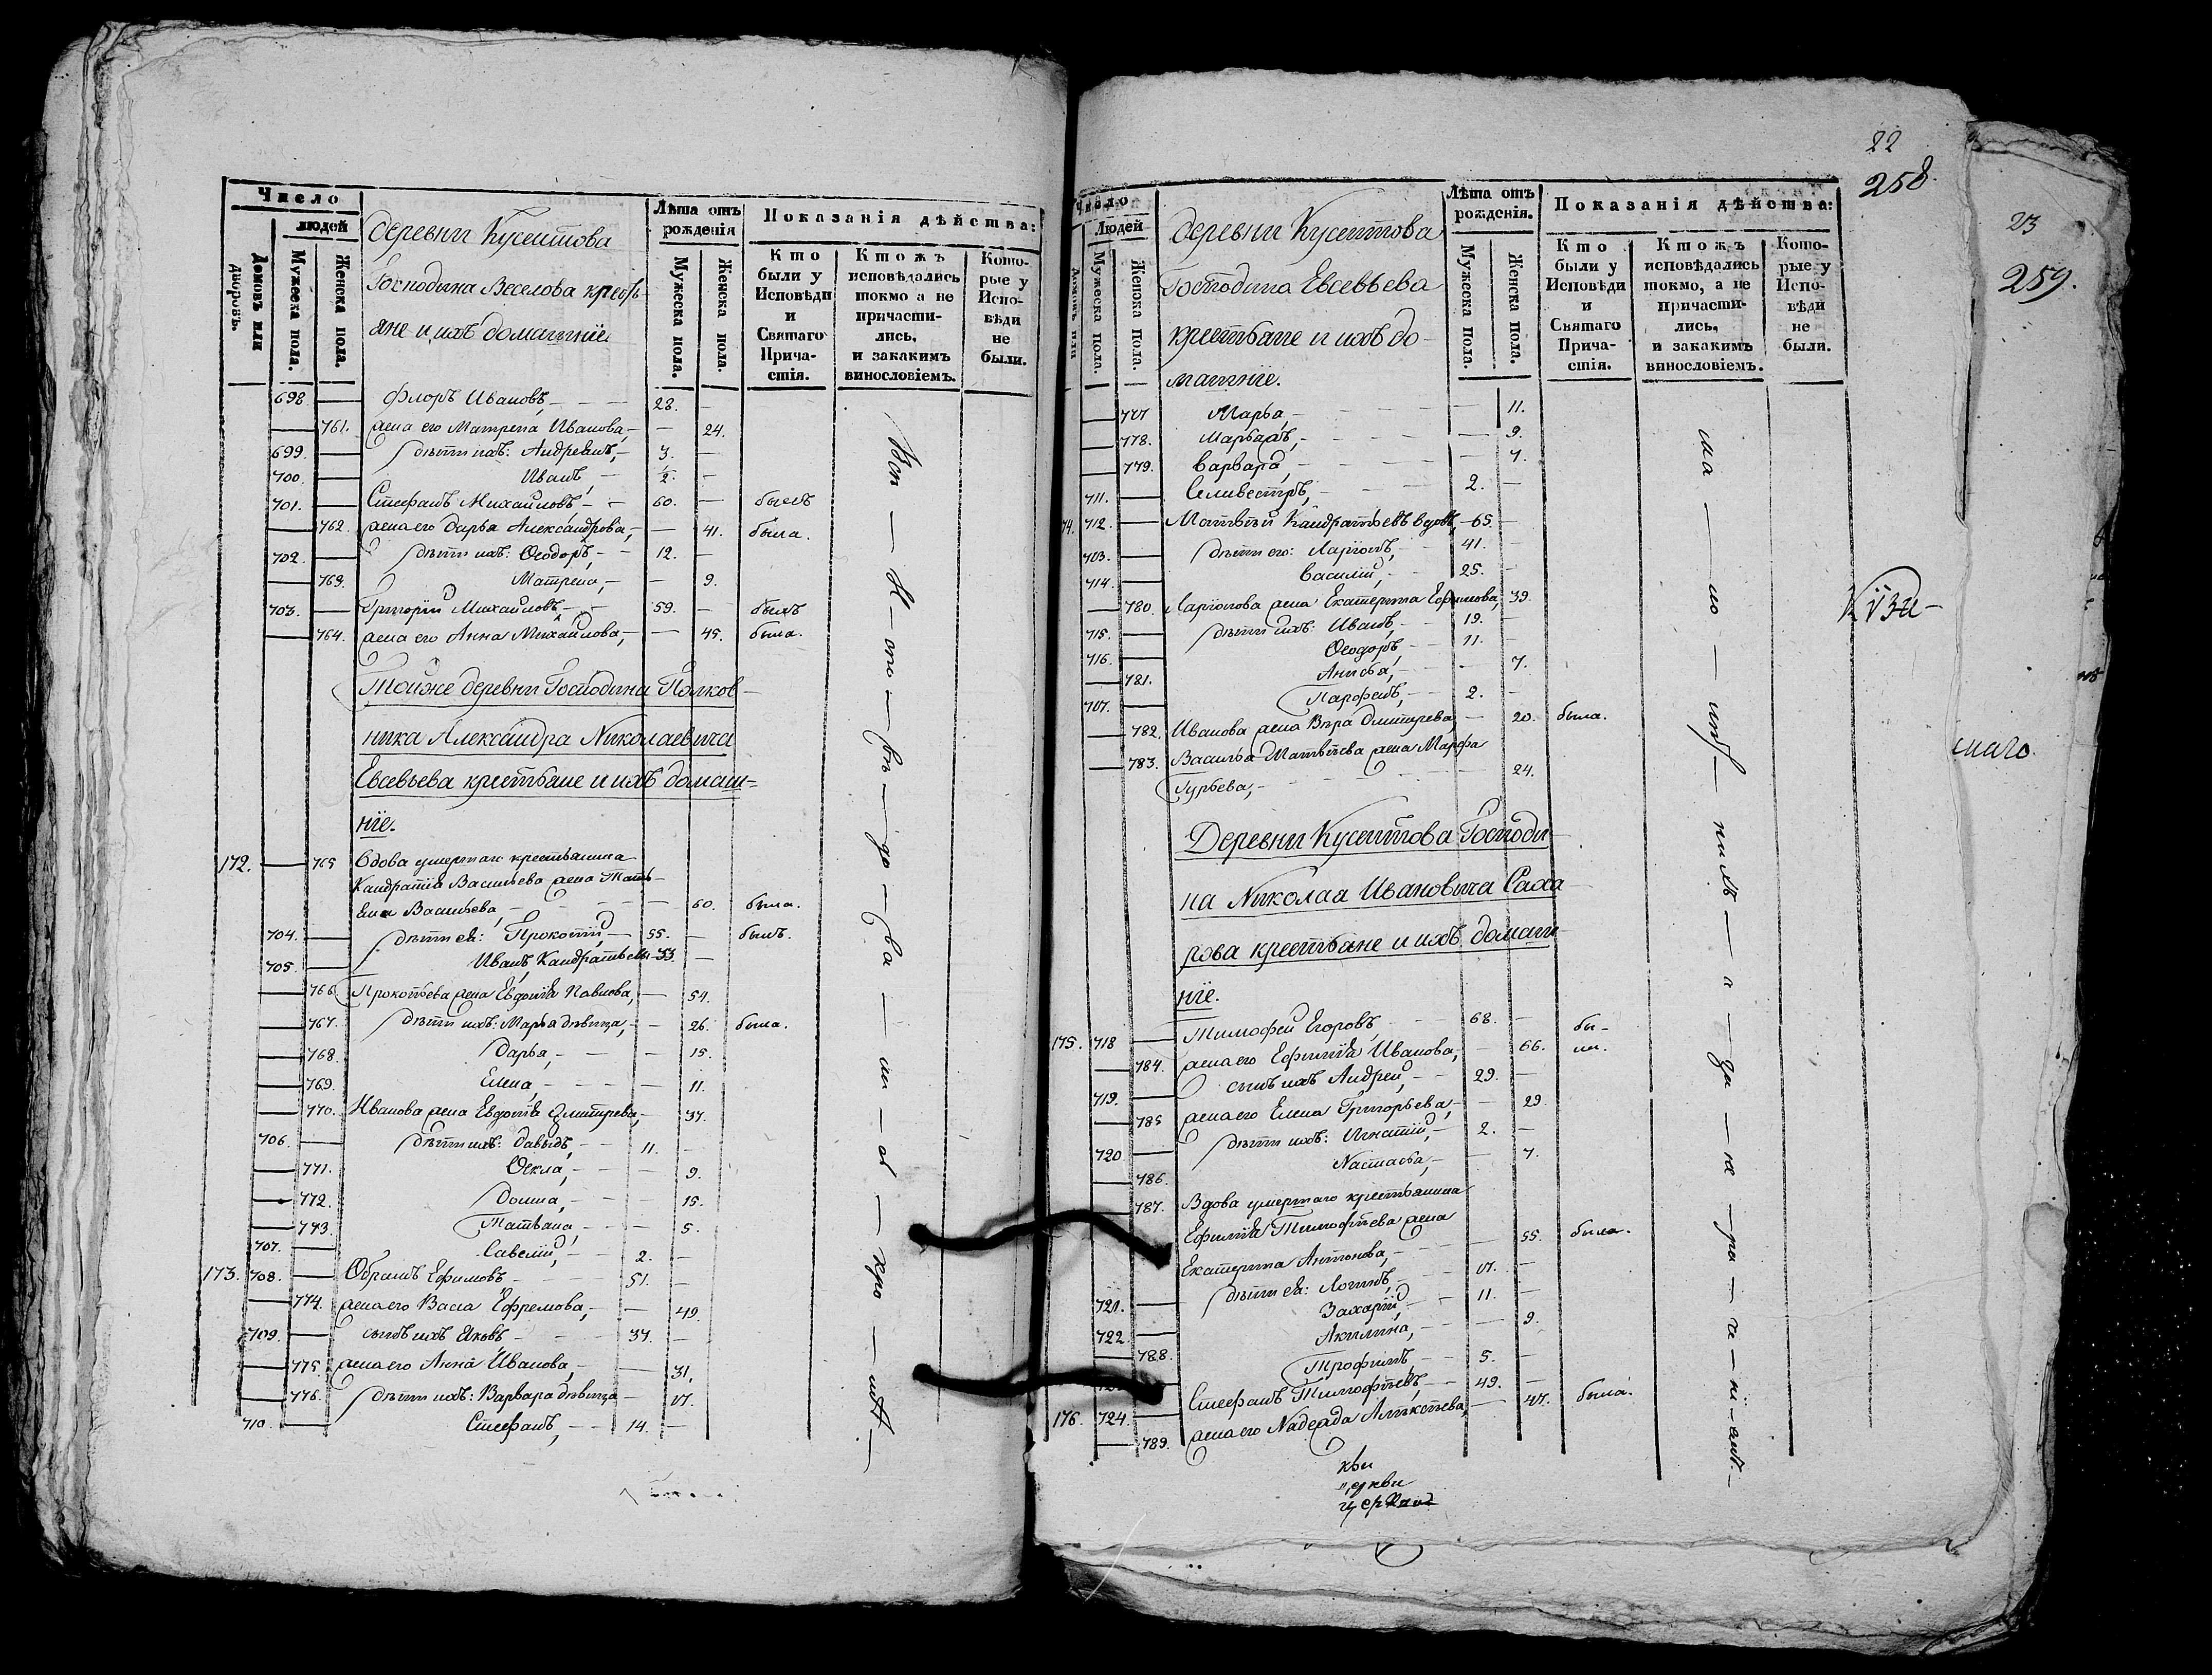 Число
людей
Домовъ или дворовъ.
Мужеска пола.
Женска пола.
деревни Кусеитова
Господина Веселова кресть
яне и ихъ домашніе
Лѣта отъ рожденія
Мужеска пола.
Женска пола.
Показанія дѣйства:
Кто были у Исповѣди и Святаго Причастія.
Ктожъ исповѣдались токмо а не причастились, и закакимъ винословіемъ.
Которые у Исповѣди не были.
698 — Флоръ Ивановъ, — 28. —
— 761. жена его Матрена Иванова, — — 24.
699 — дѣти ихъ: Андреянъ, — 3. —
700. — Иванъ, — ½. —
701. — Стефанъ Михайловъ — 60. — былъ
— 762. жена его Дарья Александрова, — — 41. была.
702. — дѣти ихъ: Ѳеодоръ, — 12. —
— 763. Матрена, — — 9.
703. — Григорій Михайловъ — 59. — былъ
— 764. жена его Анна Михайлова, — — 45. была.
Тойже деревни Господина Полков-
ника Александра Николаевича
Евсевьева крестьяне и ихъ домаш-
ніе.
172. — 765 Вдова умершаго крестьянина
Кандратія Васильева жена Тать-
яна Васильева, — — 60. была.
704. — дѣти ея: Прокопій, — 55. — былъ.
705. — Иванъ Кандратьевы 33. —
— 766 Прокопьева жена Евдокія Павлова, — 54.
— 767. дѣти ихъ: Марья дѣвица, — — 26. была.
— 768. Дарья, — — 15.
— 769. Елена, — — 11.
— 770. Иванова жена Евдокія Дмитрева, — 37.
706. — дѣти ихъ: Давыдъ, — 11. —
— 771. Ѳекла, — — 9.
— 772. Домна, — — 15.
— 773. Татьяна, — — 5.
707. — Савелій, — 2. —
173. 708. — Обрамъ Ефимовъ — 51. —
— 774. жена его Васса Ефремова, — — 49.
709. — сынъ ихъ Яковъ — 37. —
— 775. жена его Анна Иванова, — — 31.
— 776. дѣти ихъ: Варвара дѣвица — 17.
710. — Стефанъ, — 14. —
22
258.
Число
Людей
Мужеска пола.
Женска пола.
деревни Кусеитова
Господина Евсевьева
крестьяне и ихъ до-
машніе.
Лѣта отъ рожденія.
Мужеска пола.
Женска пола.
Показанія дѣйства:
Кто были у Исповѣди и Святаго Причастія.
Ктожъ исповѣдались токмо, а не причастились, и закакимъ винословіемъ.
Которые у Исповѣди не были.
— 777 Марья, — — 11.
— 778. — — 9.
— 779. Варвара, — — 7.
711. — Селивестръ, — 2. —
74. 712. — Матвѣй Кандратьевъ вдовъ, — 65. —
713. — дѣти его: Ларіонъ, — 41. —
714. — Василій, — 25. —
— 780. Ларіонова жена Екатерина Ефимова, 39.
715. — дѣти ихъ: Иванъ, — 19. —
716. — Ѳеодоръ, — 11. —
— 781. Анисья, — — 7.
717. — Парфенъ, — 2. —
— 782. Иванова жена Вѣра Дмитрева, — 20. была.
— 783. Василья Матвѣева жена Марфа
Гурьева, — — 24.
Деревни Кусеитова Господи-
на Николая Ивановича Саха-
рова крестьяне и ихъ домаш-
ніе.
175. 718 — Тимофей Егоровъ, — 68. — бы-
— 784. жена его Ефимія Иванова, — — 66. ли.
719. — сынъ ихъ Андрей, — 29. —
— 785 жена его Елена Григорьева, — — 29
720 — дѣти ихъ: Игнатій, — 2. —
— 786. Настасья, — — 7.
— 787. Вдова умершаго крестьянина
Ефимія Тимофѣева жена
Екатерина Антонова, — — 55. была.
721. — дѣти ея: Логинъ, — 17. —
722. — Захарій, — 11. —
— 788. Акилина, — — 9.
Трофимъ, — 5. —
176. 724. — Стефанъ Тимофѣевъ, — 49. —
— 789. жена его Надежда Алѣксѣева, — 47. была.
кви
церкви
23
259.